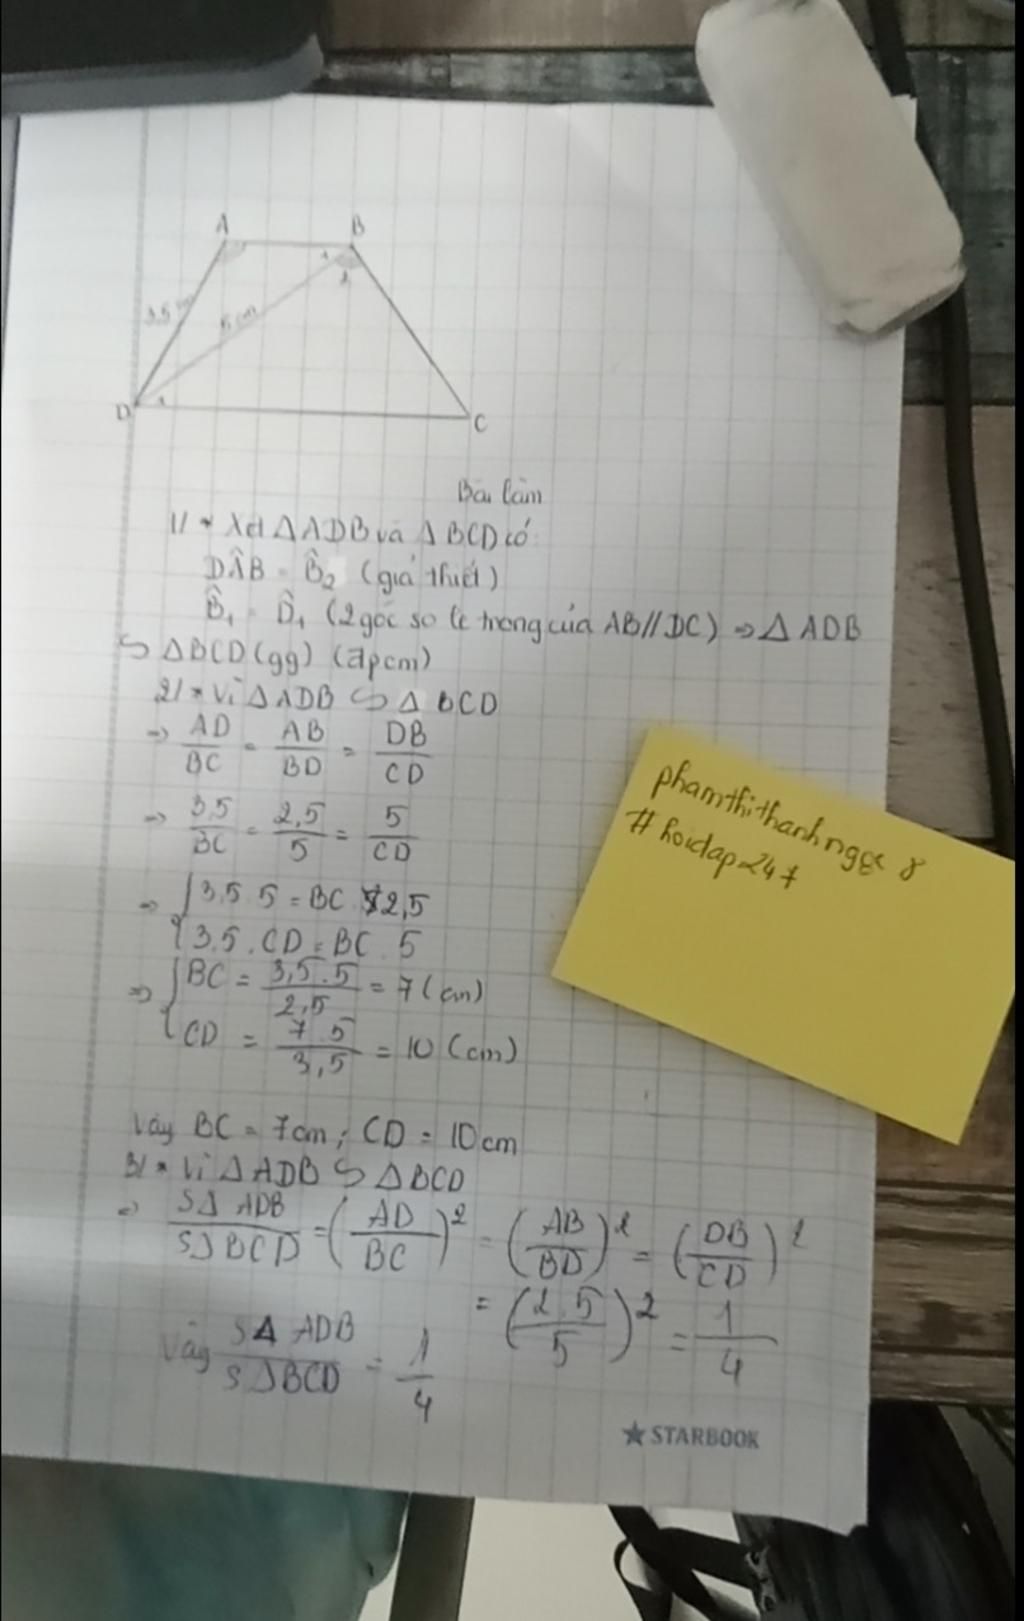 A B
1
2
3.5 cm
5 cm
D 1
C
Bài làm
1/ * Xét ΔADB và ΔBCD có:
DÂB = B̂₂ (giả thiết)
B̂₁ = D̂₁ (2 góc so le trong của AB//DC) ⇒ Δ ADB
∽ ΔBCD (gg) (đpcm)
2/ * Vì ΔADB ∽ Δ BCD
⇒ AD/BC = AB/BD = DB/CD
⇒ 3,5/BC = 2,5/5 = 5/CD
⇒ { 3,5. 5 = BC. 2,5
3,5. CD = BC. 5
⇒ { BC = 3,5.5/2,5 = 7 (cm)
CD = 7.5/3,5 = 10 (cm)
Vậy BC = 7cm; CD = 10cm
3/ * Vì ΔADB ∽ ΔBCD
⇒ SΔ ADB/SΔBCD = (AD/BC)² = (AB/BD)² = (DB/CD)²
= (2,5/5)² = 1/4
Vậy SΔ ADB/SΔBCD = 1/4
phamthithanhngọc8
#hoidap247
★ STARBOOK